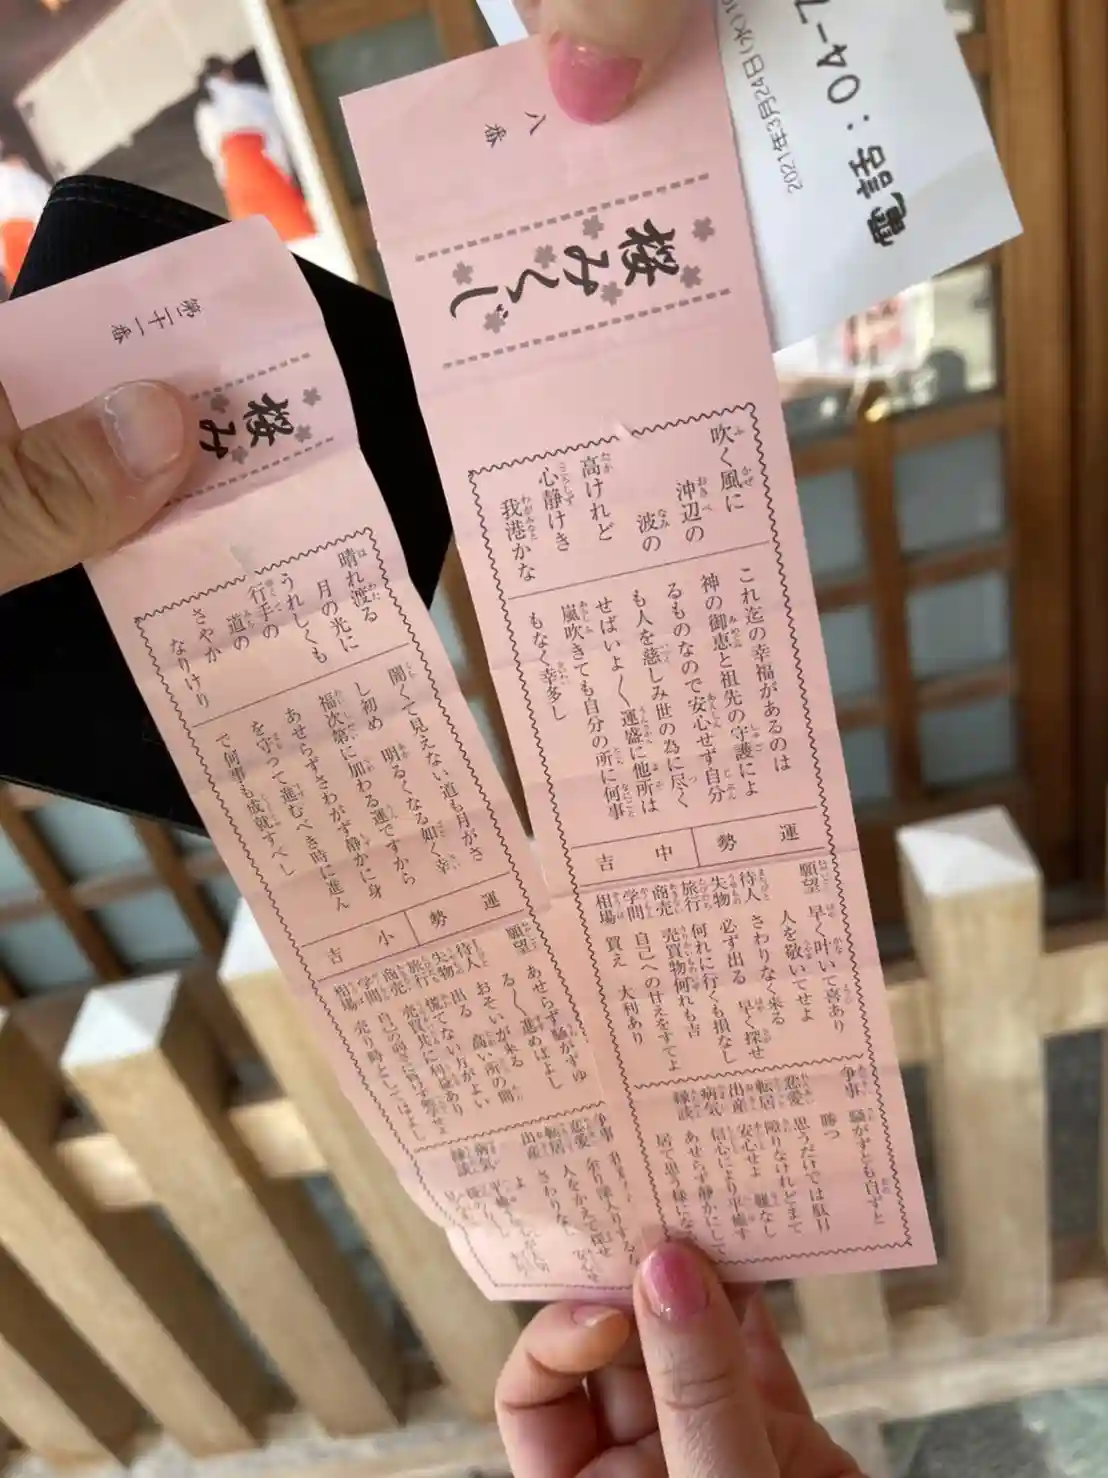 八番
桜みくじ
吹く風に
沖辺の
波の
高けれど
心静けき
我港かな
これ迄の幸福があるのは
神の御恵と祖先の守護によ
るものなので安心せず自分
も人を慈しみ世の為に尽く
せばいよ〱運盛に他所は
嵐吹きても自分の所に何事
もなく幸多し
運勢
中吉
願望 早く叶いて喜あり
人を敬いてせよ
待人 さわりなく来る
失物 必ず出る 早く探せ
旅行 何れに行くも損なし
商売 売買物何れも吉
学問 自己への甘えをすてよ
相場 買え 大利あり
争事 騒がずとも自ずと
勝つ
恋愛 思うだけでは駄目
転居 障りなけれどまて
出産 安心せよ 難なし
病気 信心により平癒す
縁談 あせらず静かにして
居て思う様になる
第二十一番
桜み
晴れ渡る
月の光に
うれしくも
行手の
道の
さやか
なりけり
闇くて見えない道も月がさ
し初め 明るくなる如く幸
福次第に加わる運ですから
あせらずさわがず静かに身
を守って進むべき時に進ん
で何事も成就すべし
運勢
小吉
願望 あせらず騒がずゆ
る〱進めばよし
待人 おそいが来る
失物 出る 高い所の間
旅行 慌てない方がよい
商売 売買共に利益あり
学問 自己の弱さに負けず勉学せよ
相場 売り時としてはよし
争事
恋愛 余り深入りするな
転居 人をかえて探せ
出産 さわりなし 安心せ
よ
病気
縁談
2021年3月24日(水)10
電話：04-7